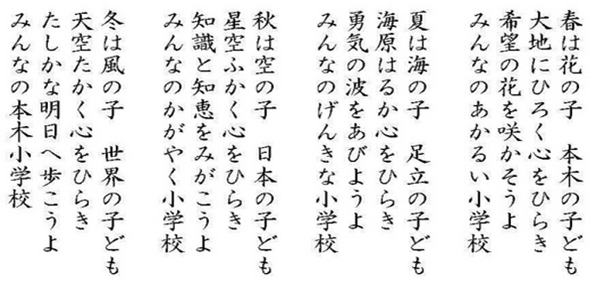 春は花の子　本木の子ども
大地にひろく心をひらき
希望の花を咲かそうよ
みんなのあかるい小学校
夏は海の子　足立の子ども
海原はるか心をひらき
勇気の波をあびようよ
みんなのげんきな小学校
秋は空の子　日本の子ども
星空ふかく心をひらき
知識と知恵をみがこうよ
みんなのかがやく小学校
冬は風の子　世界の子ども
天空たかく心をひらき
たしかな明日へ歩こうよ
みんなの本木小学校